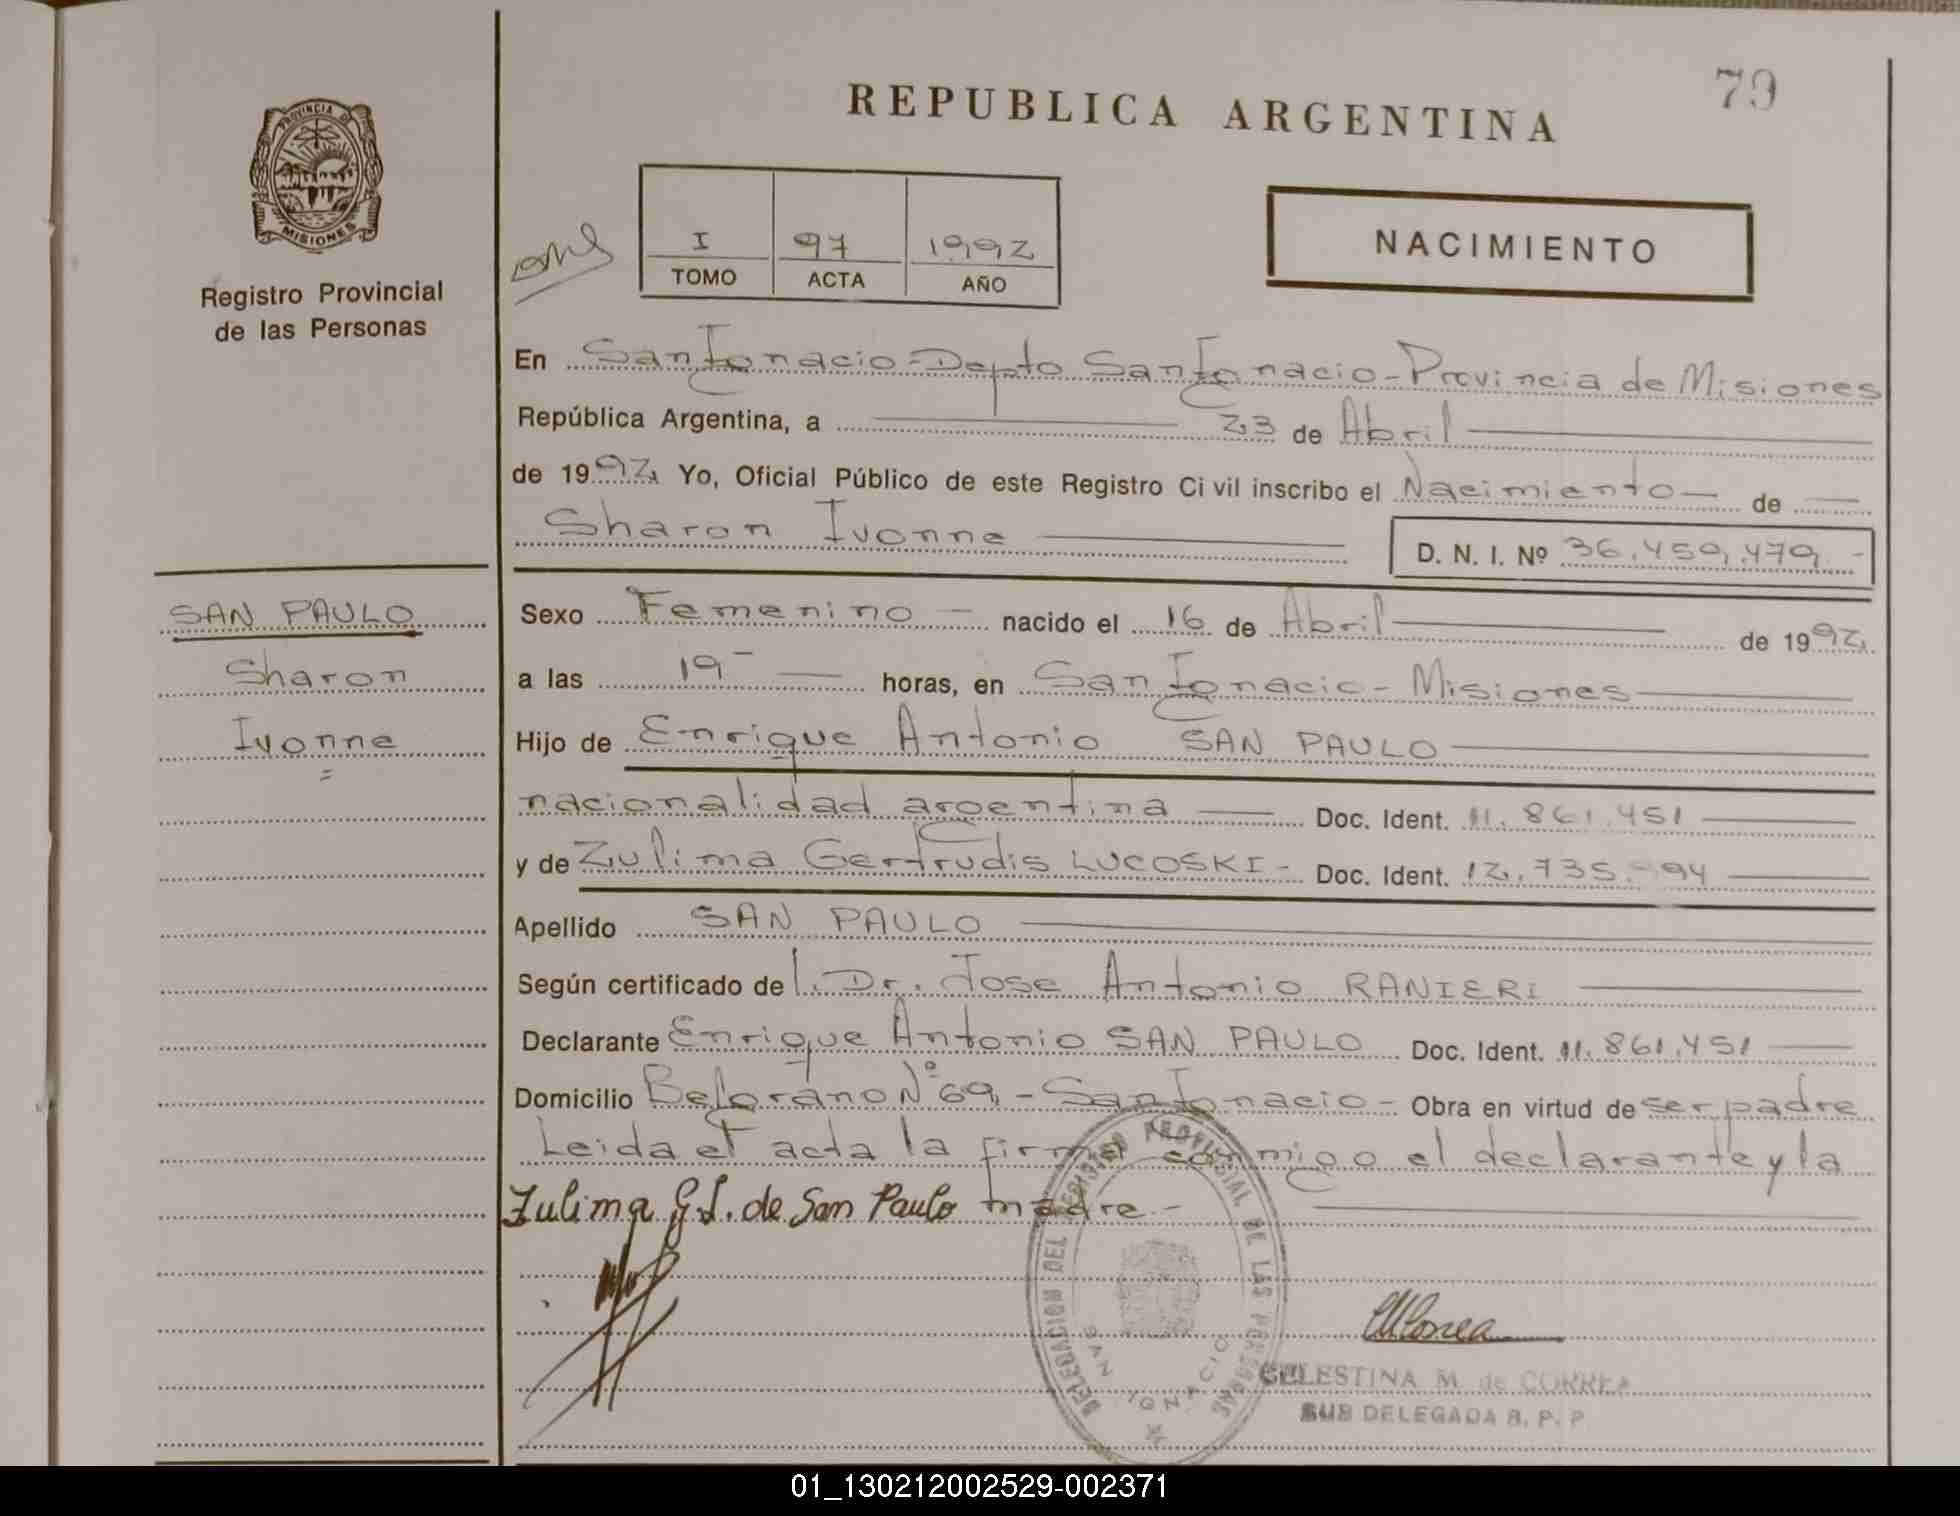 79
REPUBLICA ARGENTINA
PROVINCIA DE
MISIONES
Registro Provincial
de las Personas
I 97 1992
TOMO ACTA AÑO
NACIMIENTO
En San Ignacio - Depto San Ignacio - Provincia de Misiones
República Argentina, a 23 de Abril
de 1992 Yo, Oficial Público de este Registro Civil inscribo el Nacimiento de
Sharon Ivonne
D. N. I. Nº 36.459.479.-
SAN PAULO
Sharon
Ivonne
Sexo Femenino - nacido el 16 de Abril de 1992
a las 19 horas, en San Ignacio - Misiones
Hijo de Enrique Antonio SAN PAULO
nacionalidad argentina Doc. Ident. 11.861.451
y de Zulima Gertrudis LUCOSKI - Doc. Ident. 12.735.
Apellido SAN PAULO
Según certificado de l. Dr. Jose Antonio RANIERI
Declarante Enrique Antonio SAN PAULO Doc. Ident. 11.861.451
Domicilio Belgrano Nº 69, - San Ignacio - Obra en virtud de ser padre
Leida el acta la firma conmigo el declarante y la
Zulima G L. de San Paulo madre -
DELEGACION DEL REGISTRO PROVINCIAL DE LAS PERSONAS
SAN IGNACIO
CELESTINA M. de CORREA
SUB DELEGADA R. P. P.
01_130212002529-002371